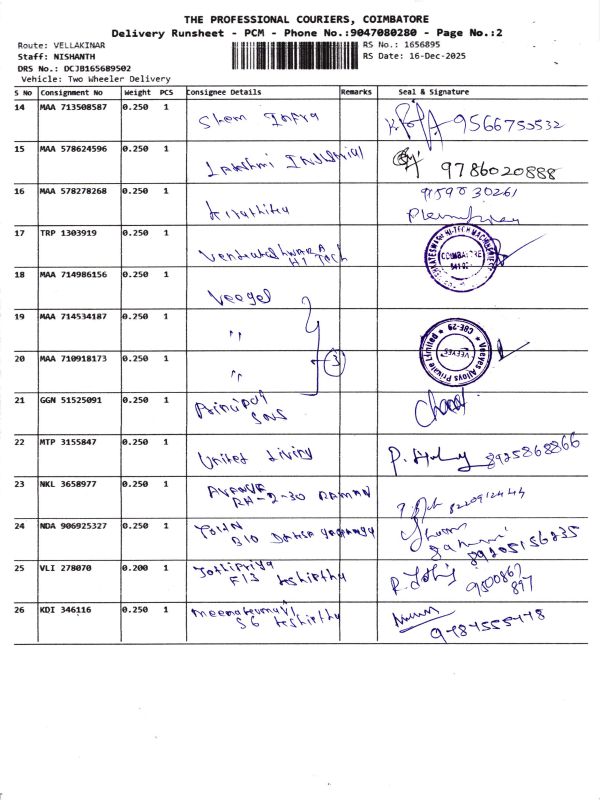 THE PROFESSIONAL COURIERS, COIMBATORE
Delivery Runsheet - PCM - Phone No.:9047080280 - Page No.:2
Route: VELLAKINAR
RS No.: 1656895
Staff: NISHANTH
RS Date: 16-Dec-2025
DRS No.: DCJB165689502
Vehicle: Two Wheeler Delivery
S No Consignment No Weight PCS Consignee Details Remarks Seal & Signature
14 MAA 713508587 0.250 1 Infra 9566753532
15 MAA 578624596 0.250 1 Lakshmi Industrial 9786020888
16 MAA 578278268 0.250 1 9159030261
17 TRP 1303919 0.250 1 HI Tech COIMBATORE
18 MAA 714986156 0.250 1
19 MAA 714534187 0.250 1 "
20 MAA 710918173 0.250 1 " 3 Veeyes Alloys Private Limited CBE-29 VEEYES
21 GGN 51525091 0.250 1 Sons
22 MTP 3155847 0.250 1 United Living 8925868866
23 NKL 3658977 0.250 1 RH-2-30 RAMAN
24 NDA 906925327 0.250 1 B10 89205156235
25 VLI 278070 0.200 1 Jothipriya F13 R. Jothi 9500867 897
26 KDI 346116 0.250 1 S6 9787555778